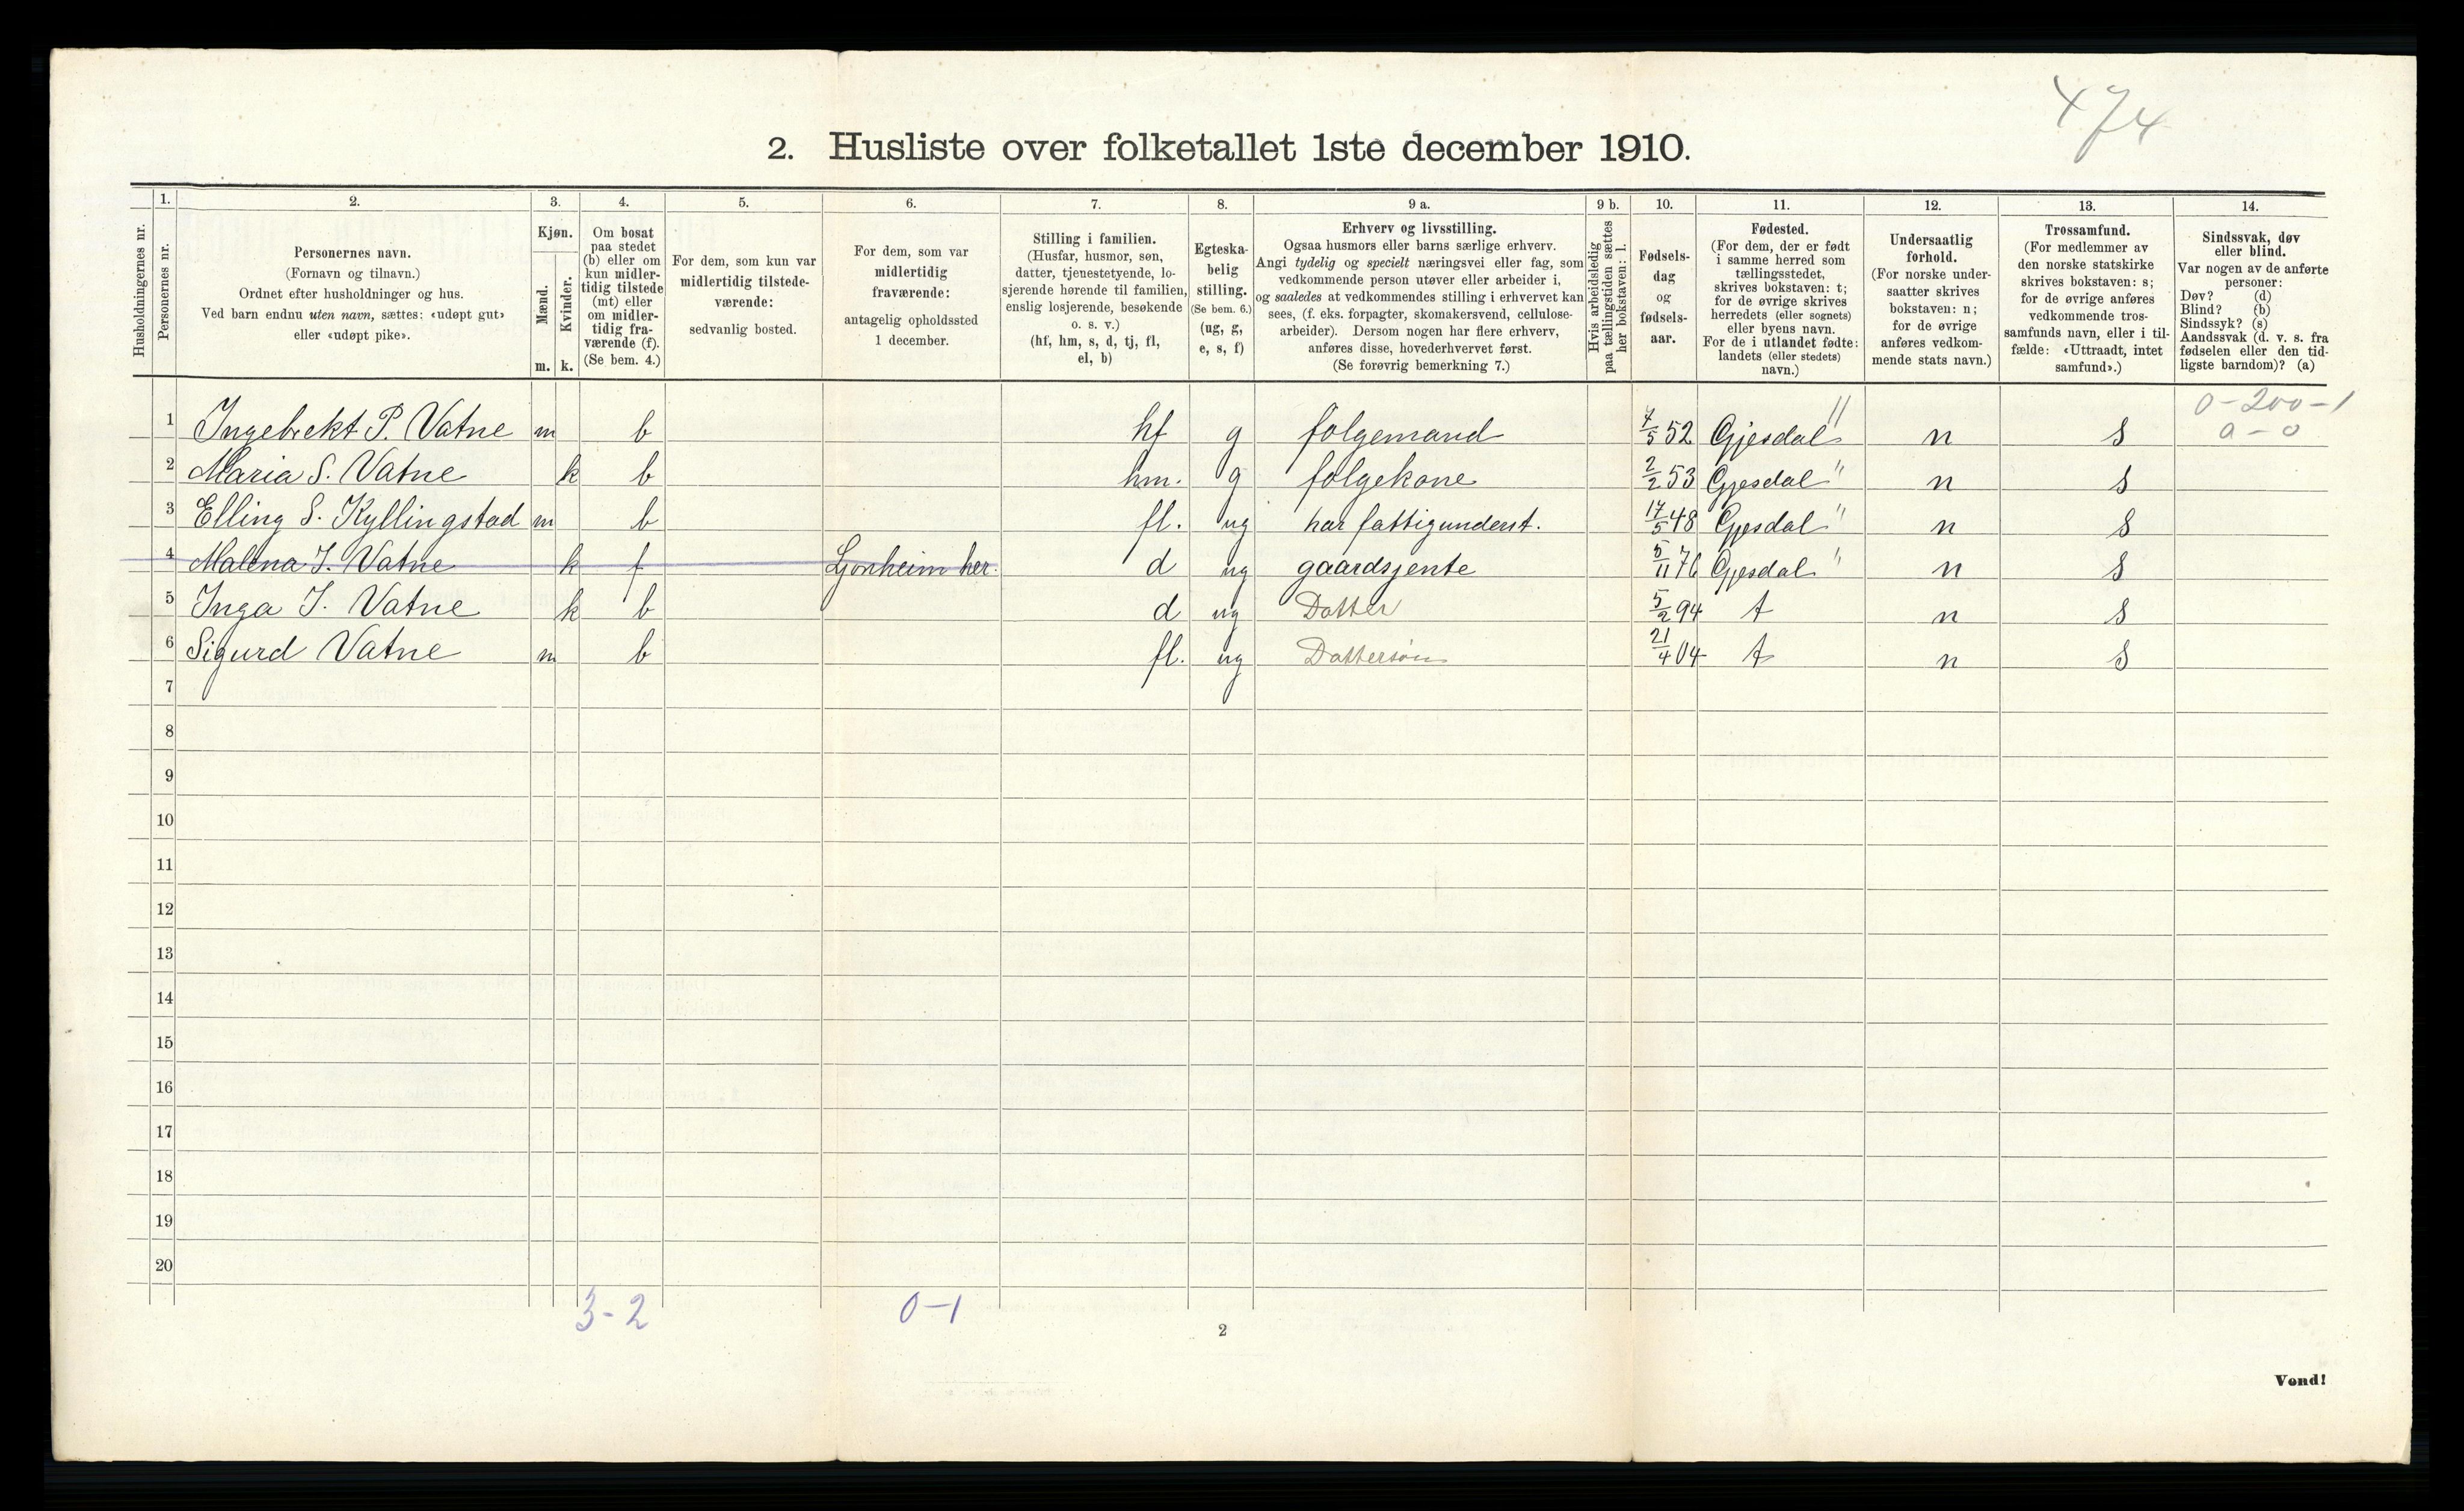 474
2. Husliste over folketallet 1ste december 1910.
Husholdningernes nr.
1.
Personernes nr.
2.
Personernes navn.
(Fornavn og tilnavn.)
Ordnet efter husholdninger og hus.
Ved barn endnu uten navn, sættes: «udøpt gut»
eller «udøpt pike».
3.
Kjøn.
Mænd.
m.
Kvinder.
k.
4.
Om bosat
paa stedet
(b) eller om
kun midler-
tidig tilstede
(mt) eller
om midler-
tidig fra-
værende (f).
(Se bem. 4.)
5.
For dem, som kun var
midlertidig tilstede-
værende:
sedvanlig bosted.
6.
For dem, som var
midlertidig
fraværende:
antagelig opholdssted
1 december.
7.
Stilling i familien.
(Husfar, husmor, søn,
datter, tjenestetyende, lo-
sjerende hørende til familien,
enslig losjerende, besøkende
o. s. v.)
(hf, hm, s, d, tj, fl,
el, b)
8.
Egteska-
belig
stilling.
(Se bem. 6.)
(ug, g,
e, s, f)
9 a.
Erhverv og livsstilling.
Ogsaa husmors eller barns særlige erhverv.
Angi tydelig og specielt næringsvei eller fag, som
vedkommende person utøver eller arbeider i,
og saaledes at vedkommendes stilling i erhvervet kan
sees, (f. eks. forpagter, skomakersvend, cellulose-
arbeider). Dersom nogen har flere erhverv,
anføres disse, hovederhvervet først.
(Se forøvrig bemerkning 7.)
9 b.
Hvis arbeidsledig
paa tællingstiden sættes
her bokstaven: l.
10.
Fødsels-
dag
og
fødsels-
aar.
11.
Fødested.
(For dem, der er født
i samme herred som
tællingsstedet,
skrives bokstaven: t;
for de øvrige skrives
herredets (eller sognets)
eller byens navn.
For de i utlandet fødte:
landets (eller stedets)
navn.)
12.
Undersaatlig
forhold.
(For norske under-
saatter skrives
bokstaven: n;
for de øvrige
anføres vedkom-
mende stats navn.)
13.
Trossamfund.
(For medlemmer av
den norske statskirke
skrives bokstaven: s;
for de øvrige anføres
vedkommende tros-
samfunds navn, eller i til-
fælde: «Uttraadt, intet
samfund».)
14.
Sindssvak, døv
eller blind.
Var nogen av de anførte
personer:
Døv? (d)
Blind? (b)
Sindssyk? (s)
Aandssvak (d. v. s. fra
fødselen eller den tid-
ligste barndom)? (a)
0-200-1
0-0
1 Ingebrekt P. Vatne m b hf g folgemand 7/5 52 Gjesdal " n s
2 Maria S. Vatne k b hm. g folgekone 2/2 53 Gjesdal " n s
3 Elling S. Kyllingstad m b fl. ug har fattigunderst. 17/5 48 Gjesdal " n s
4 Malena I. Vatne k f her. d ug gaardsjente 5/11 76 Gjesdal " n s
5 Inga I. Vatne k b d ug Datter 5/2 94 t n s
6 Sigurd Vatne m b fl. ug Dattersøn 21/4 04 t n s
7
8
9
10
11
12
13
14
15
16
17
18
19
20
3-2 0-1
2
Vend!